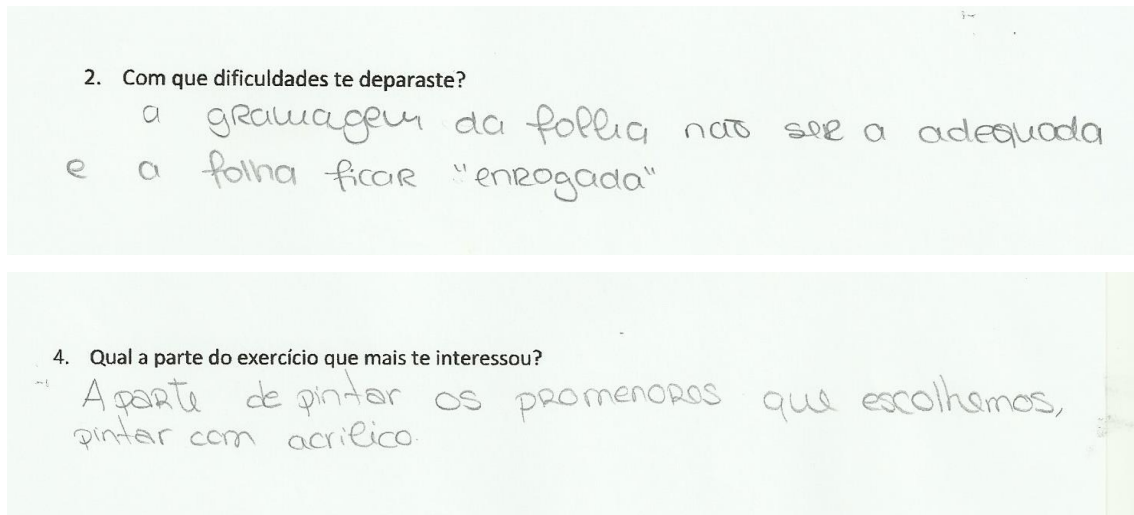 2. Com que dificuldades te deparaste?
a gramagem da folha não ser a adequada
e a folha ficar "enrogada"
4. Qual a parte do exercício que mais te interessou?
A parte de pintar os promenores que escolhemos,
pintar com acrilico.